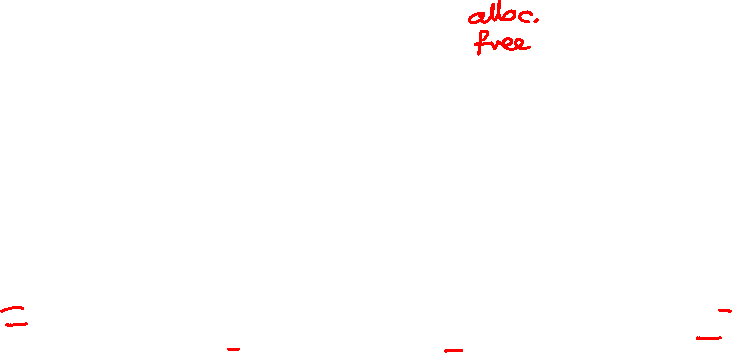 alloc.
free